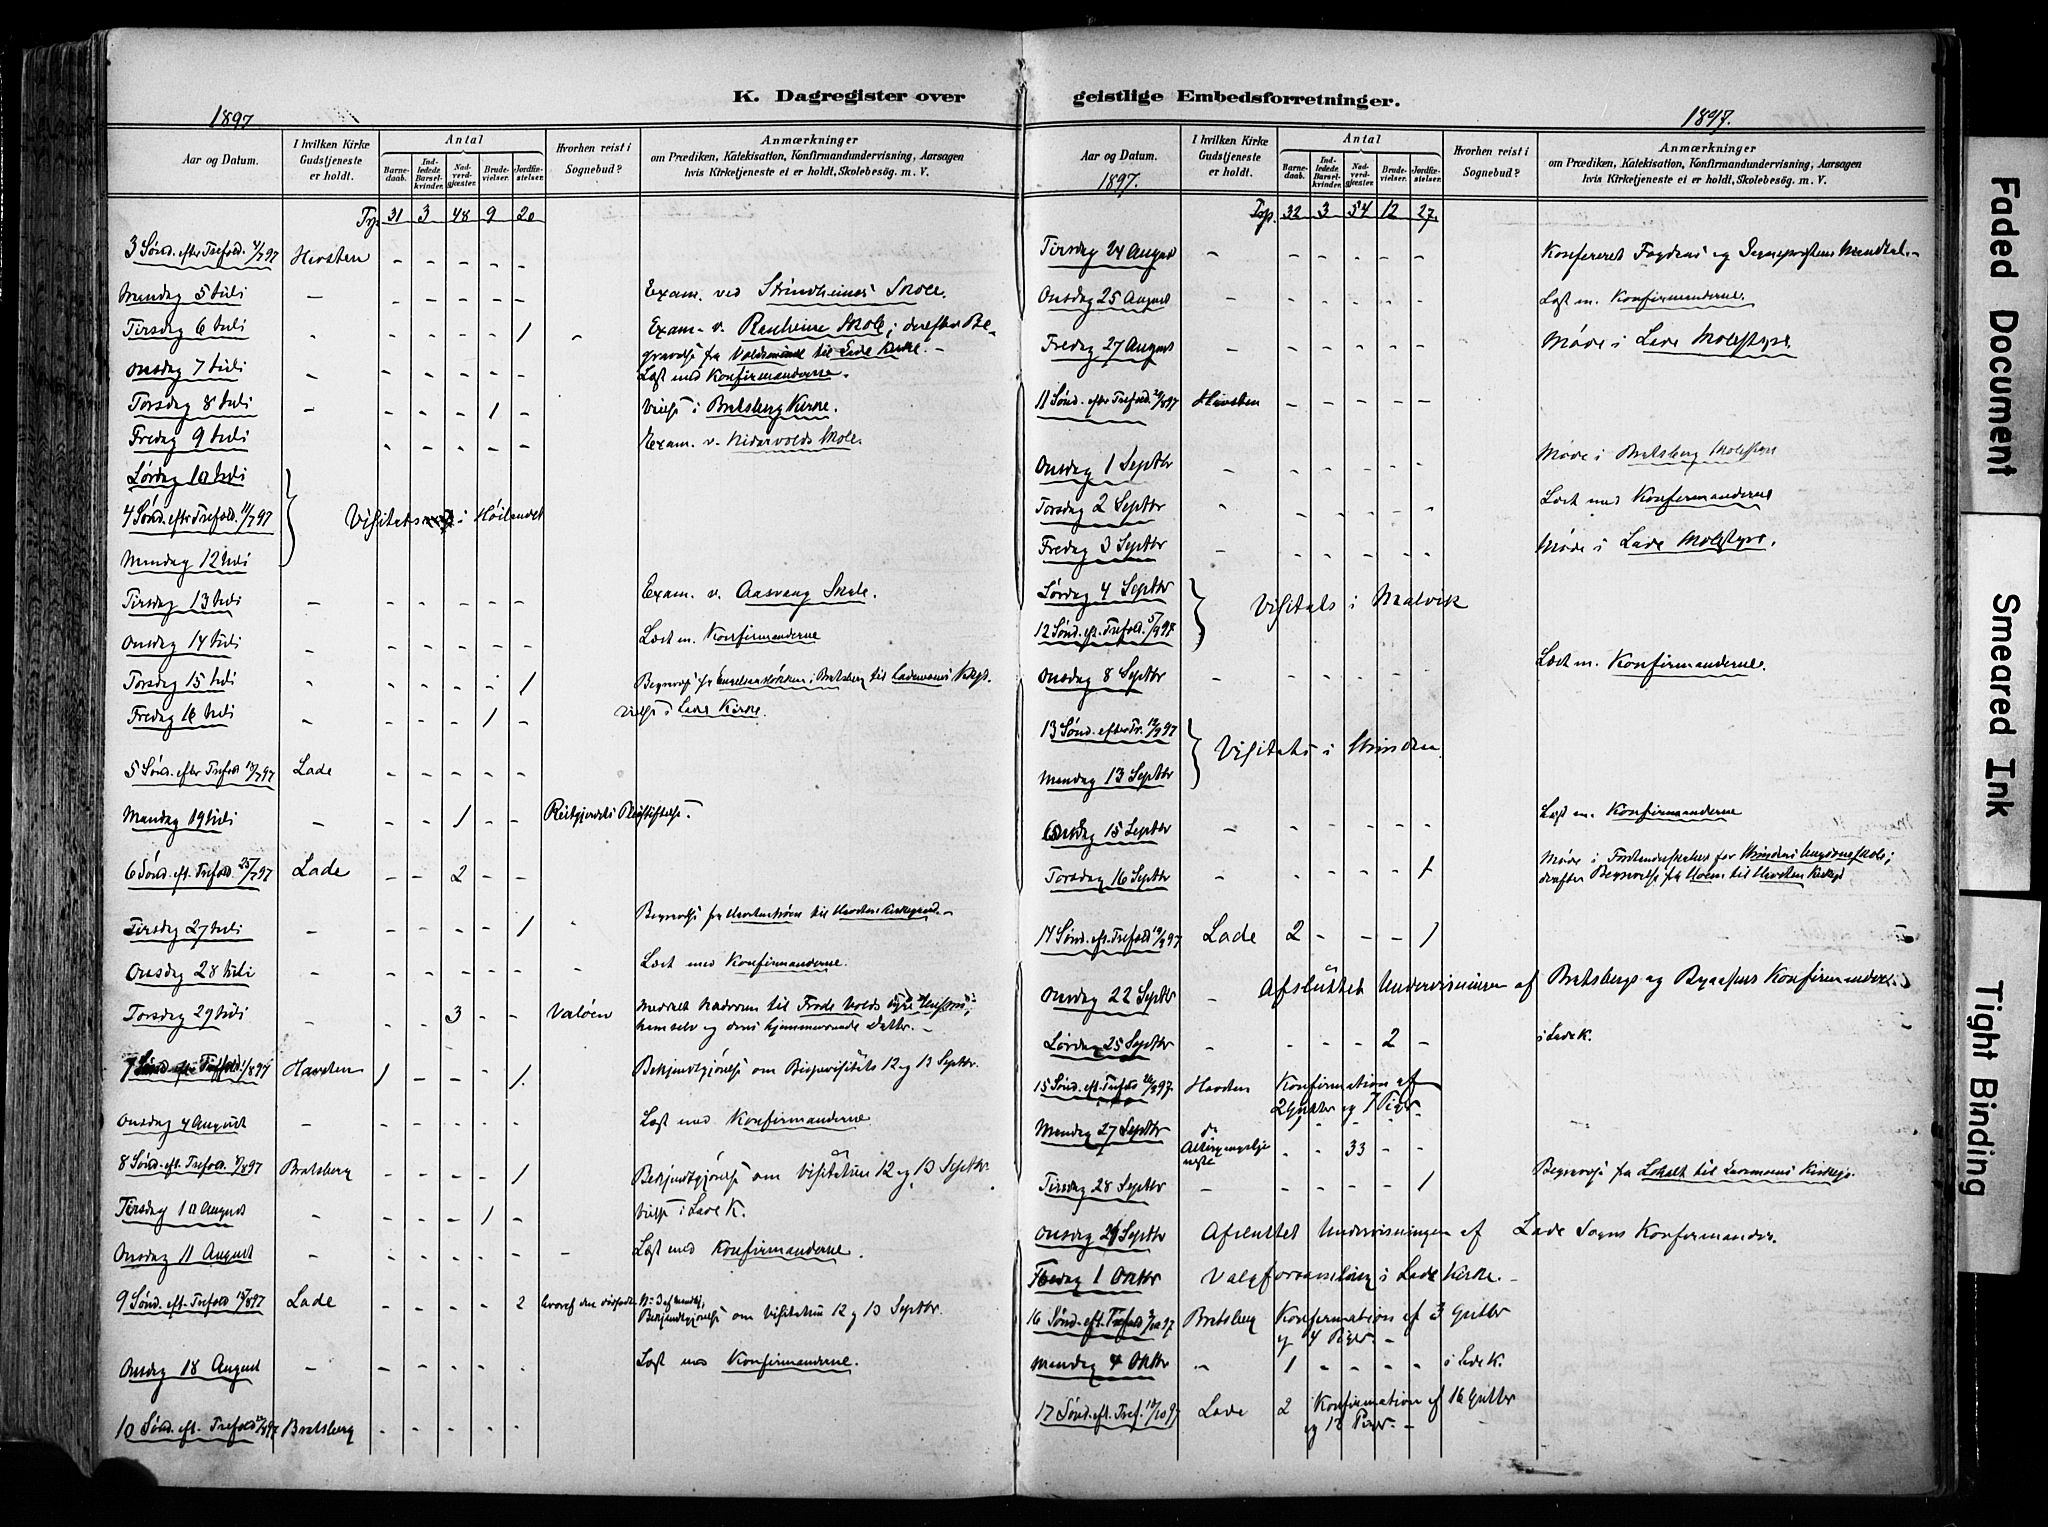 K. Dagregister over
1897
Aar og Datum.
I hvilken Kirke Gudstjeneste er holdt.
Antal
Barnedaab.
Indledede Barselkvinder.
Nadverdgjæster.
Brudevielser.
Jordfæstelser.
Hvorhen reist i Sognebud?
Anmærkninger
om Prædiken, Katekisation, Konfirmandundervisning, Aarsagen
hvis Kirketjeneste ei er holdt, Skolebesøg. m. V.
31 3 48 9 20
3 Sønd. efter Trefold. 4/7 97 - - - - -
Mandag 5 Juli - - - - - - Exam. ved Strindheims Skole.
Tirsdag 6 Juli - - - - - 1 Exam. v. Ranheim Skole; derefter Be-
gravelse fra til Lade Kirke. -
Onsdag 7 Juli - - - - - - Læst med Konfirmanderne.
Torsdag 8 Juli - - - - 1 - Vielse i Bratsberg Kirke.
Fredag 9 Juli - - - - - Exam. v. Nidarvolds Skole.
Lørdag 10 Juli
4 Sønd. eftr Trefold. 11/7 97 Visitats i Høilandet
Mandag 12 Juli
Tirsdag 13 Juli - - - - - - Exam. v. Aasvang Skole.
Onsdag 14 Juli - - - - - - Læst m. Konfirmanderne
Torsdag 15 Juli - - - - - 1 Begravelse fra i Bratsberg til Lademoens Kirkeg.
Fredag 16 Juli - - - - 1 - Vielse i Lade Kirke.
5 Sønd. efter Trefold 18/7 97 Lade - - - - -
Mandag 19 Juli - - - 1 - - Reitgjerdets Pleiestiftelse.
6 Sønd. eft. Trefold. 25/7 97 Lade - - 2 - -
Tirsdag 27 Juli - - - - - 1 Begravelse fra til Kirkegaard. -
Onsdag 28 Juli - - - - - - Læst med Konfirmanderne.
Torsdag 29 Juli - - - 3 - - Valøen Meddelt Nadveren til
hamselv og dens hjemmeværende Datter. -
7 Sønd. eft. Trefold. 1/8 97 1 - - - 1. Bekjendtgjørelse om Bispevisitats 12 og 13 Septbr.
Onsdag 4 August - - - - - - Læst med Konfirmanderne
8 Sønd. eft. Trefold. 8/8 97 Bratsberg - - - - 1 Bekjendtgjørelse om Visitatsen 12 og 13 Septbr.
Tirsdag 10 August - - - - 1 - Vielse i Lade K.
Onsdag 11 August - - - - - - - Læst med Konfirmanderne.
9 Sønd. eft. Trefold 15/8 97 Lade - - - - 2 hvoraf den
Bekjendtgjørelse om Visitatsen 12 og 13 Septbr.
Onsdag 18 August - - - - - - Læst med Konfirmanderne.
10 Sønd. eft. Trefold 22/8 97 Bratsberg - - - - -
geistlige Embedsforretninger.
1897.
Aar og Datum.
1897.
I hvilken Kirke Gudstjeneste er holdt.
Antal
Barnedaab.
Indledede Barselkvinder.
Nadverdgjæster.
Brudevielser.
Jordfæstelser.
Hvorhen reist i Sognebud?
Anmærkninger
om Prædiken, Katekisation, Konfirmandundervisning, Aarsagen
hvis Kirketjeneste ei er holdt, Skolebesøg. m. V.
32 3 54 12 27.
Tirsdag 24 August - - - - - - Konfereret Fogdens og Sogneprestens Mandtal. -
Onsdag 25 August - - - - - - Læst m. Konfirmanderne.
Fredag 27 August - - - - - - Møde i Lade Skolestyre.
11 Sønd. efter Trefold. 29/8 97 - - - - -
Onsdag 1 Septbr - - - - - - Møde i Bratsberg Skolestyre
Torsdag 2 Septbr - - - - - - Læst med Konfirmanderne
Fredag 3 Septbr - - - - - - Møde i Lade Skolestyre.
Lørdag 4 Septbr Visitats i Malvik
12 Sønd. eft. Trefold. 5/9 97
Onsdag 8 Septbr - - - - - - Læst m. Konfirmanderne.
13 Sønd. efter Tr. 12/9 97 Visitats i Strinden
Mandag 13 Septbr
Onsdag 15 Septbr - - - - - - Læst m. Konfirmanderne
Torsdag 16 Septbr - - - - - 1 Møde i Forstanderskabet for Strindens Ungdomsskole;
derefter Begravelse fra Moen til Kirkeg.
14 Sønd. eft. Trefold 19/9 97 Lade 2 - - - 1
Onsdag 22 Septbr - Afsluttet Undervisningen af Bratsbergs og Konfirmander.
Lørdag 25 Septbr - - - - 2 - i Lade K.
15 Sønd. eft. Trefold 26/9 97. Konfirmation af
2 Gutter og 7 Piger.
Mandag 27 Septbr do Altergangstjeneste - - 33 - -
Tirsdag 28 Septbr - - - - - 1 Begravelse fra til Lademoens Kirkeg.
Onsdag 29 Septbr Afsluttet Undervisningen af Lade Sogns Konfirmander.
Fredag 1 Oktbr Valgforsamling i Lade Kirke. -
16 Sønd. eft. Trefold 3/10 97 Bratsberg Konfirmation af 3 Gutter
og 4 Piger. -
Mandag 4 Oktbr - 1 - - - - i Lade K.
17 Sønd. eft. Tref. 10/10 97 Lade 2 Konfirmation af 16 Gutter
og 18 Piger. -
Faded Document
Smeared Ink
Tight Binding